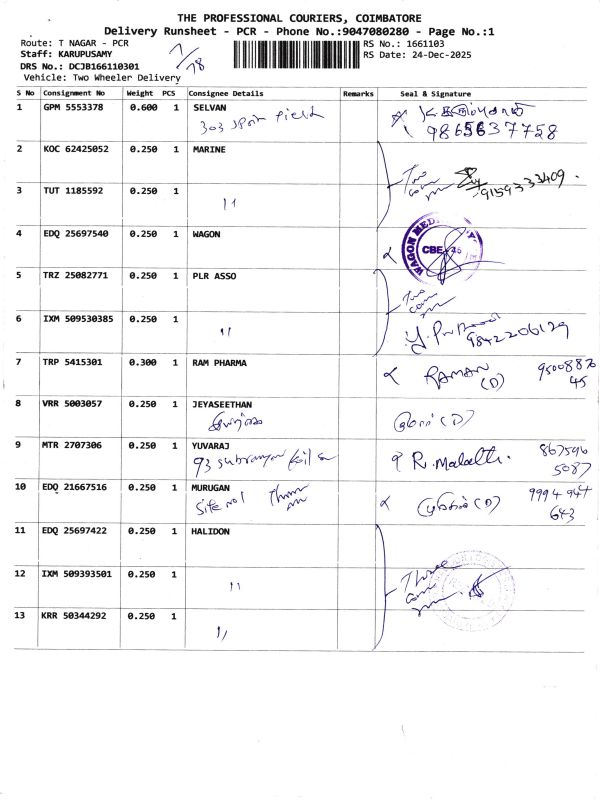 THE PROFESSIONAL COURIERS, COIMBATORE
Delivery Runsheet - PCR - Phone No.:9047080280 - Page No.:1
Route: T NAGAR - PCR
RS No.: 1661103
Staff: KARUPUSAMY
RS Date: 24-Dec-2025
DRS No.: DCJB166110301
Vehicle: Two Wheeler Delivery
7/78
S No Consignment No Weight PCS Consignee Details Remarks Seal & Signature
1 GPM 5553378 0.600 1 SELVAN
303 Field
9865637758
2 KOC 62425052 0.250 1 MARINE
Two
9159333409
3 TUT 1185592 0.250 1 "
4 EDQ 25697540 0.250 1 WAGON
WAGON MED
CBE
5 TRZ 25082771 0.250 1 PLR ASSO
Two
6 IXM 509530385 0.250 1 "
9842206129
7 TRP 5415301 0.300 1 RAM PHARMA
RAMAN (D)
95008876
45
8 VRR 5003057 0.250 1 JEYASEETHAN
(D)
9 MTR 2707306 0.250 1 YUVARAJ
93
R. Malathi
867596
5087
10 EDQ 21667516 0.250 1 MURUGAN
Site no 1
(D)
9994947
643
11 EDQ 25697422 0.250 1 HALIDON
Three
12 IXM 509393501 0.250 1 "
13 KRR 50344292 0.250 1 "